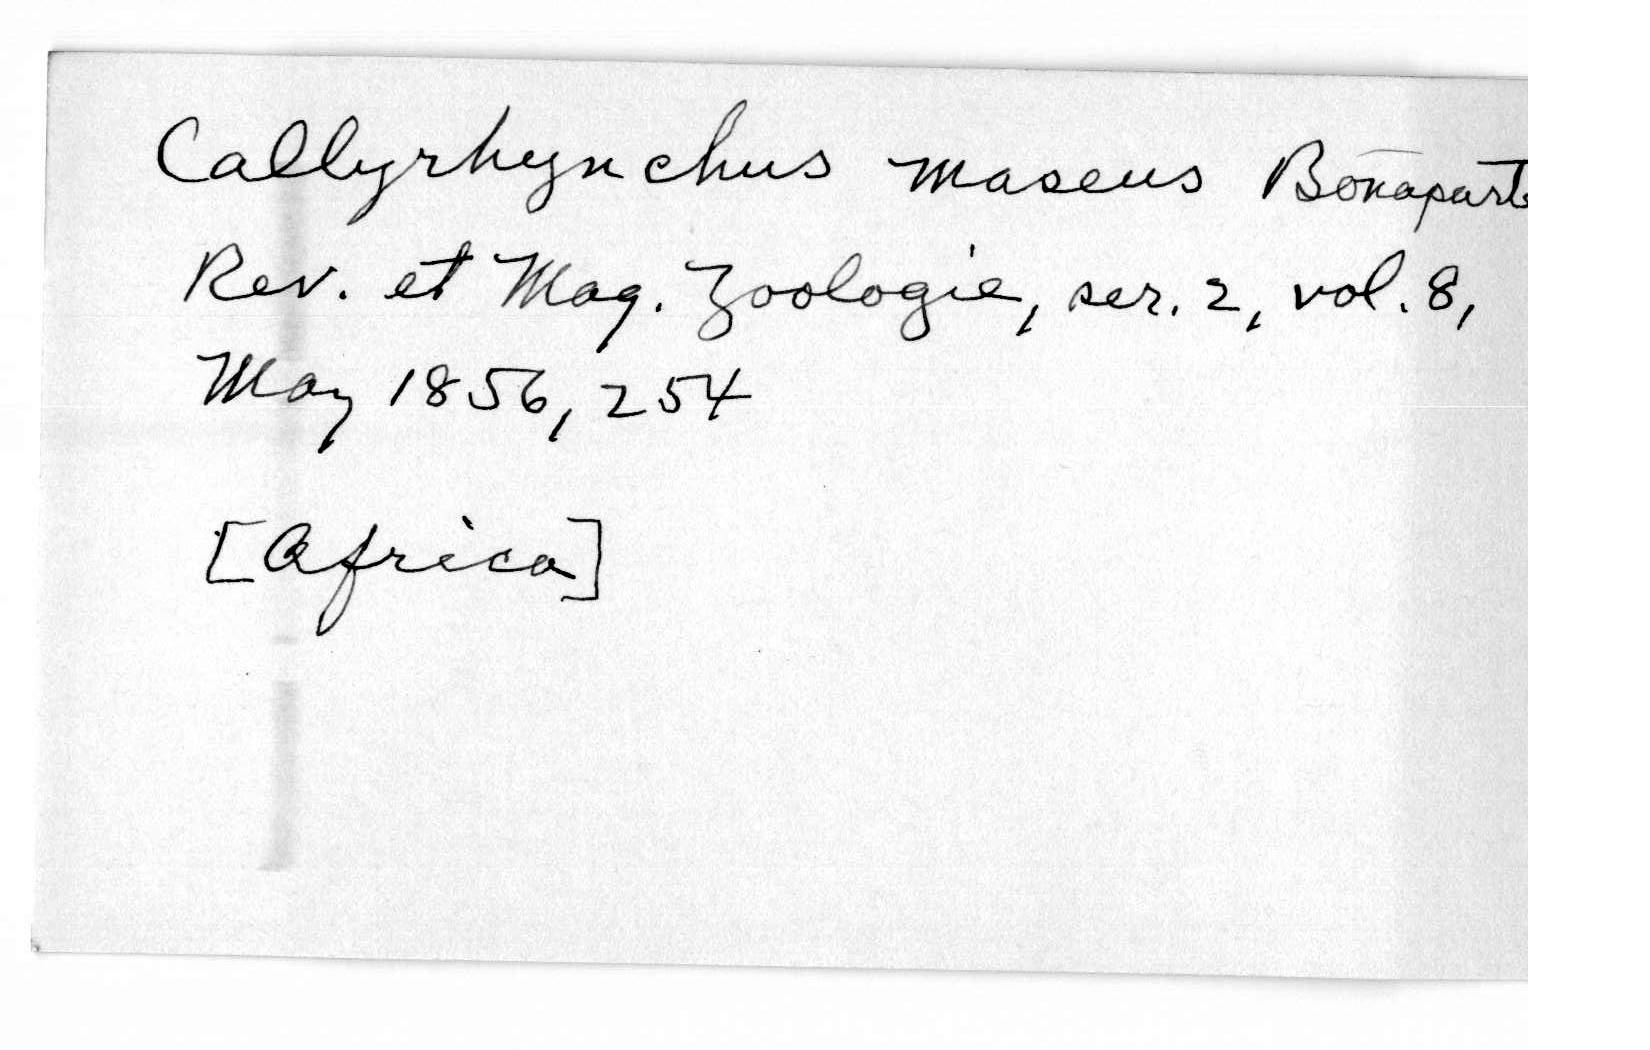 Callyrhynchus maseus Bonaparte
Rev. et Mag. Zoologie, ser. 2, vol. 8,
May 1856, 254
[Africa]